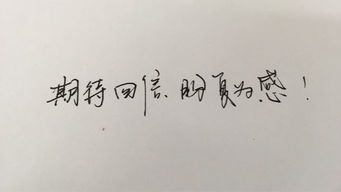 期待回信.盼复为感！